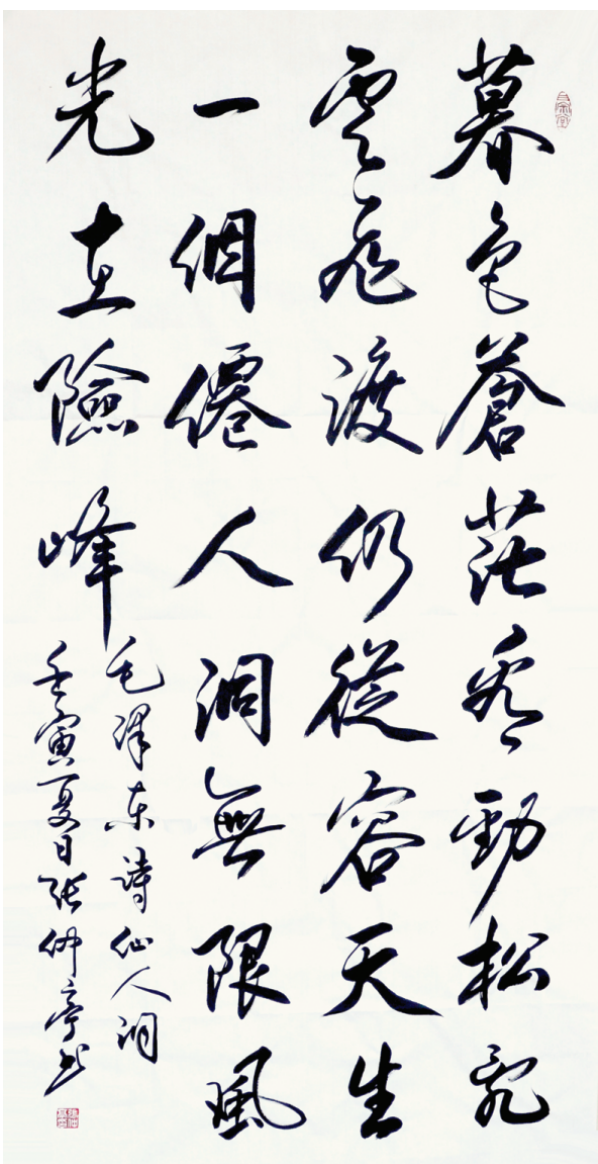 暮色蒼茫看勁松亂
雲飛渡仍從容天生
一個僊人洞無限風
光在險峰
毛澤东詩仙人洞
壬寅夏日张仲亭书